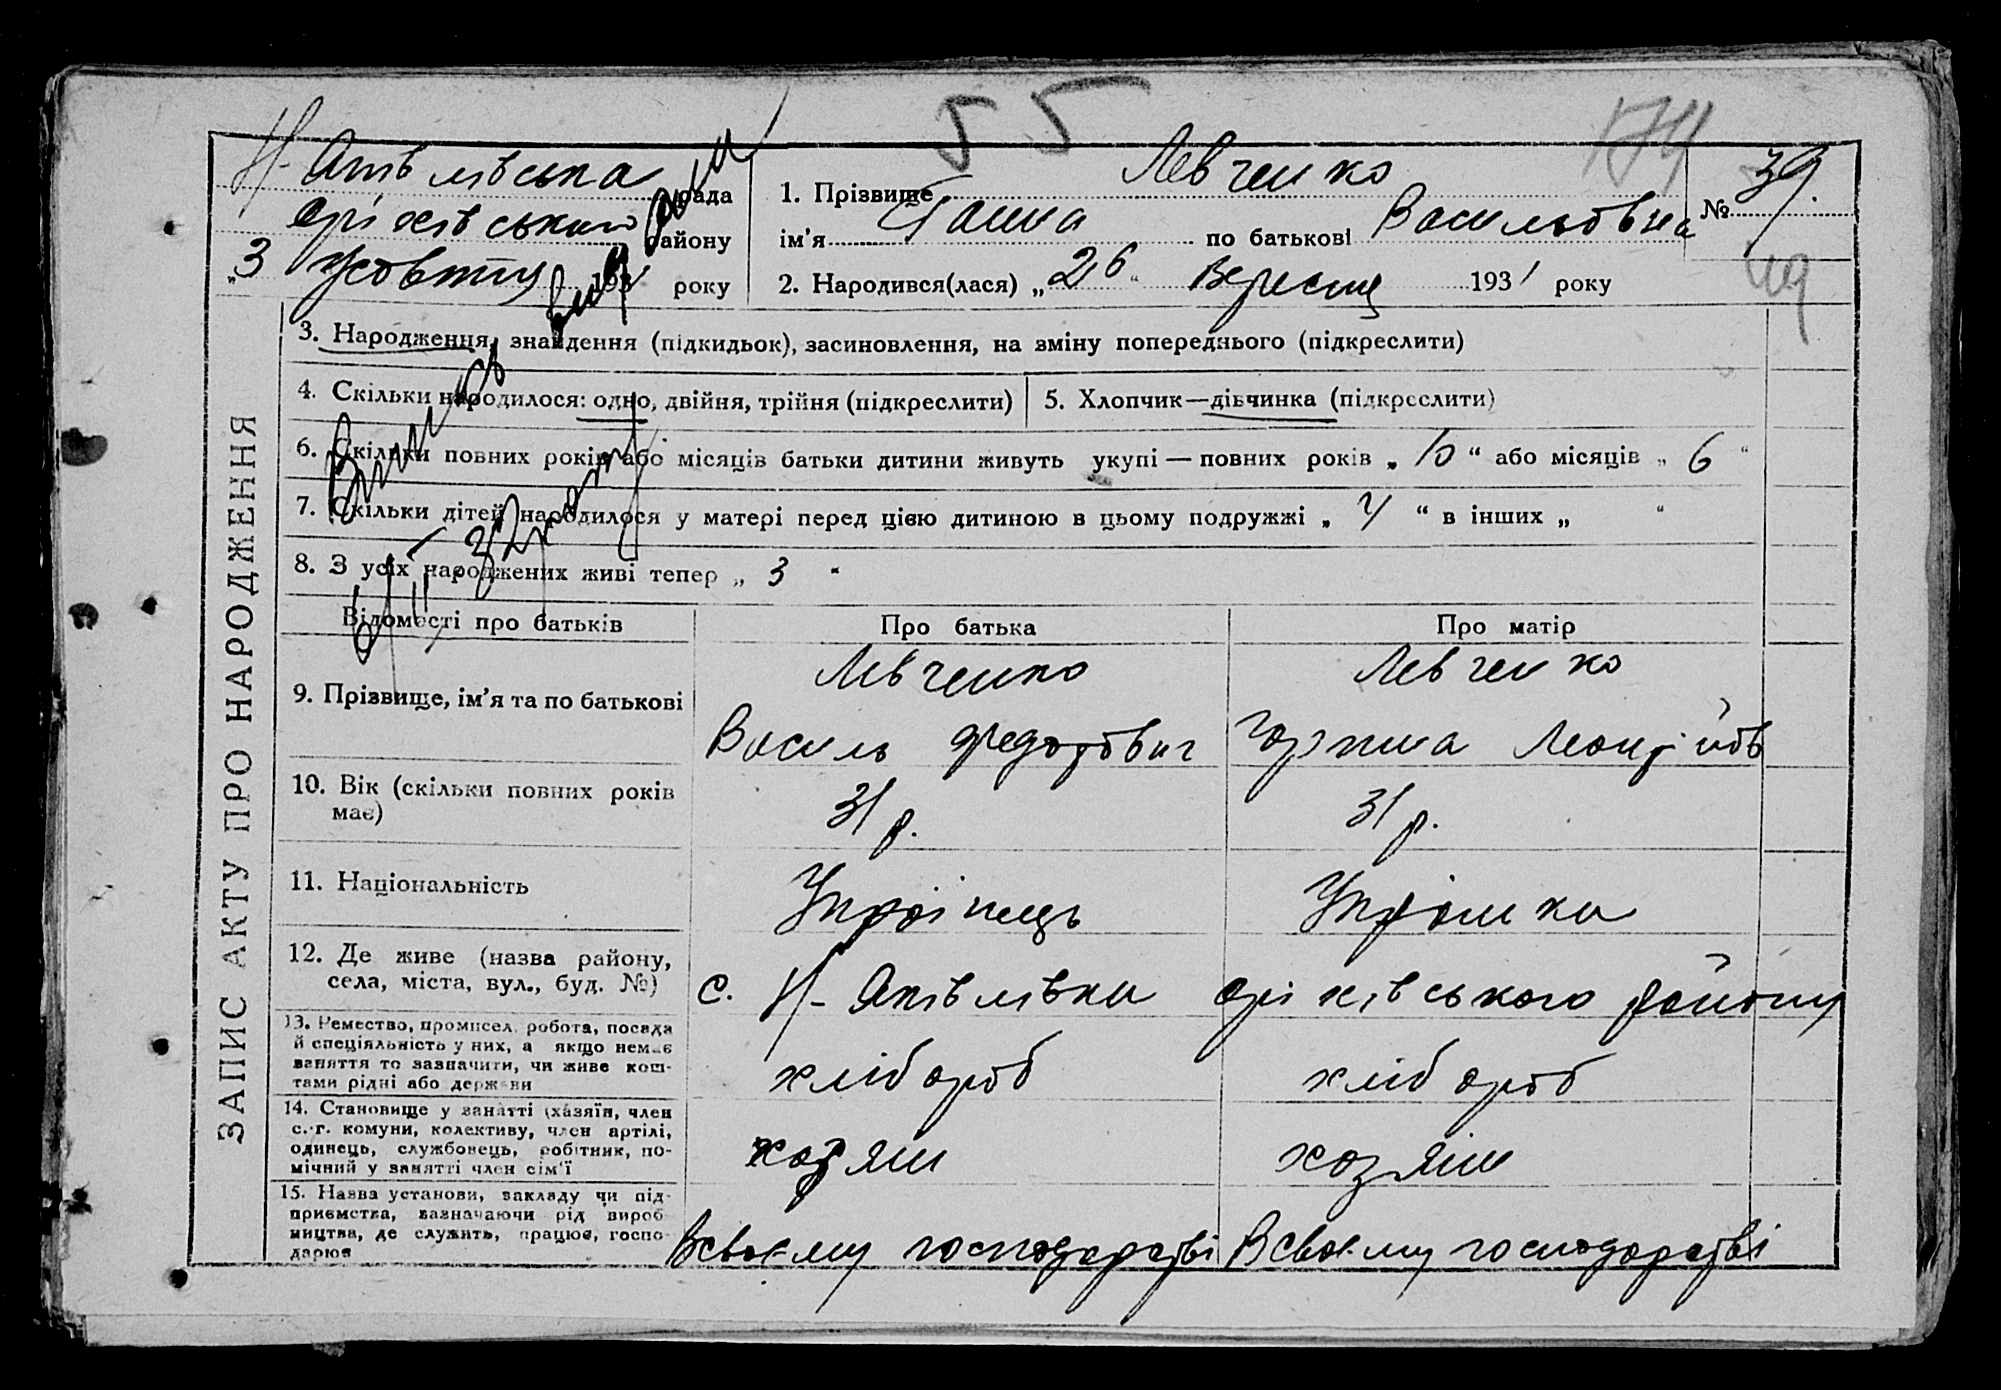 55
174
Н-Яківлівська рада
Оріхівський району
„3 Жовтня 1931 року
1. Прізвище Левченко
ім'я Ганна по батькові Васильовна
№ 39.
2. Народився(лася) „26“ Вересня 1931 року
49
3. Народження, знайдення (підкидьок), засиновлення, на зміну попереднього (підкреслити)
4. Скільки народилося: одно, двійня, трійня (підкреслити)
5. Хлопчик—дівчинка (підкреслити)
6. Скільки повних років або місяців батьки дитини живуть укупі — повних років „ 10 “ або місяців „ 6 “
7. Скільки дітей народилося у матері перед цією дитиною в цьому подружжі „ 4 “ в інших „ “
8. З усіх народжених живі тепер „ 3 “
Выпись
ЗАПИС АКТУ ПРО НАРОДЖЕННЯ
Відомості про батьків
Про батька
Про матір
9. Прізвище, ім'я та по батькові
Левченко
Василь Федорович
Левченко
Горпина
10. Вік (скільки повних років
має)
31 р.
31 р.
11. Національність
Українець
Українка
12. Де живе (назва району,
села, міста, вул., буд. №)
с. Н-Яківлівка Оріхівського району
13. Ремество, промисел, робота, посада
й спеціяльність у них, а якщо немає
заняття то зазначити, чи живе кош-
тами рідні або держави
хлібороб
хлібороб
14. Становище у занятті (хазяїн, член
с.-г. комуни, колективу, член артілі,
одинець, службовець, робітник, по-
мічний у занятті член сім'ї
хозяїн
хозяїн
15. Назва установи, закладу чи під-
приємства, зазначаючи рід вироб-
ництва, де служить, працює, госпо-
дарює
В своєму господарстві
В своєму господарстві